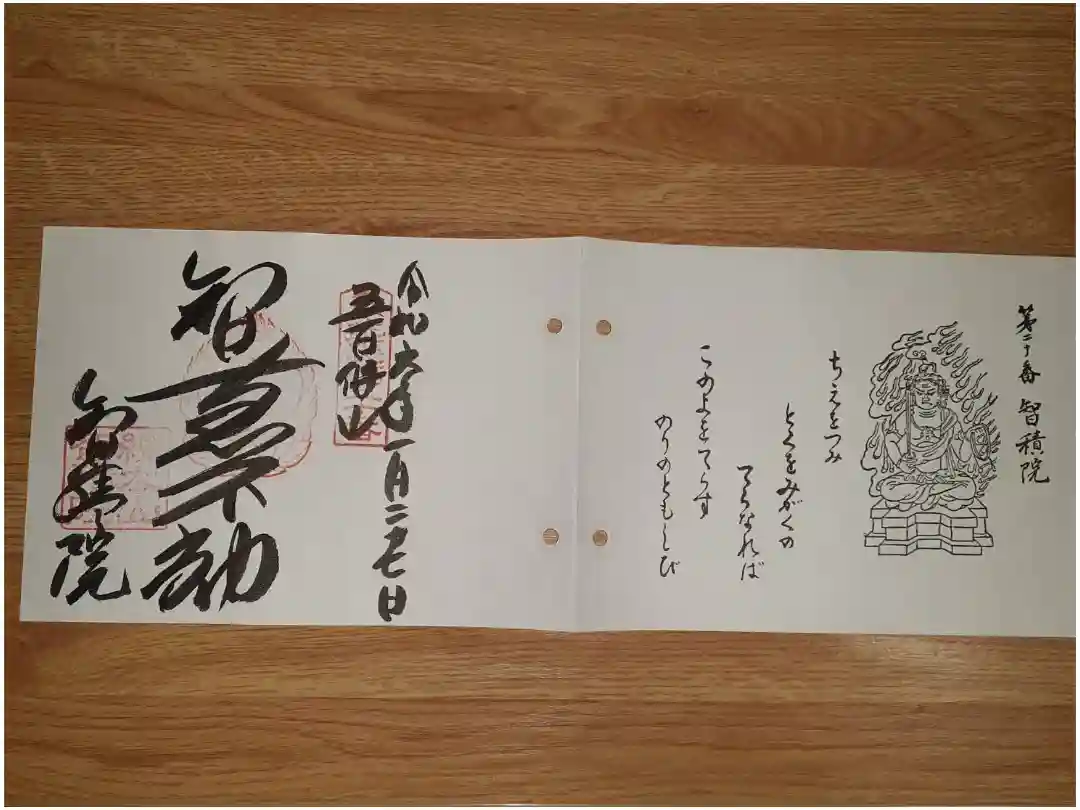 第二十番 智積院
ちえをつみ
とくをみがくの
てらなれば
このよをてらす
のりのともしび
令和六年一月二七日
五百佛山
智恵不動
智積院